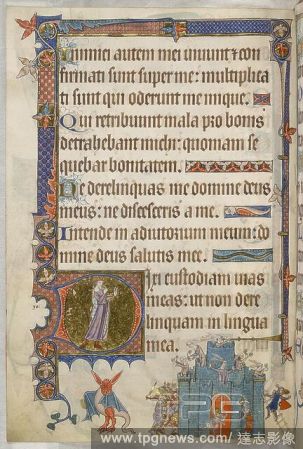 Inimici autem mei uiuunt & con
firmati sunt super me: multiplica
ti sunt qui oderunt me inique.
Qui retribuunt mala pro bonis
detrahebant michi: quoniam se
quebar bonitatem.
Ne derelinquas me domine deus
meus: ne discesseris a me.
Intende in adiutorium meum: do
mine deus salutis mee.
Dixi custodiam uias
meas: ut non dere
linquam in lingua
mea.
PG
www.tpgnews.com/達志影像